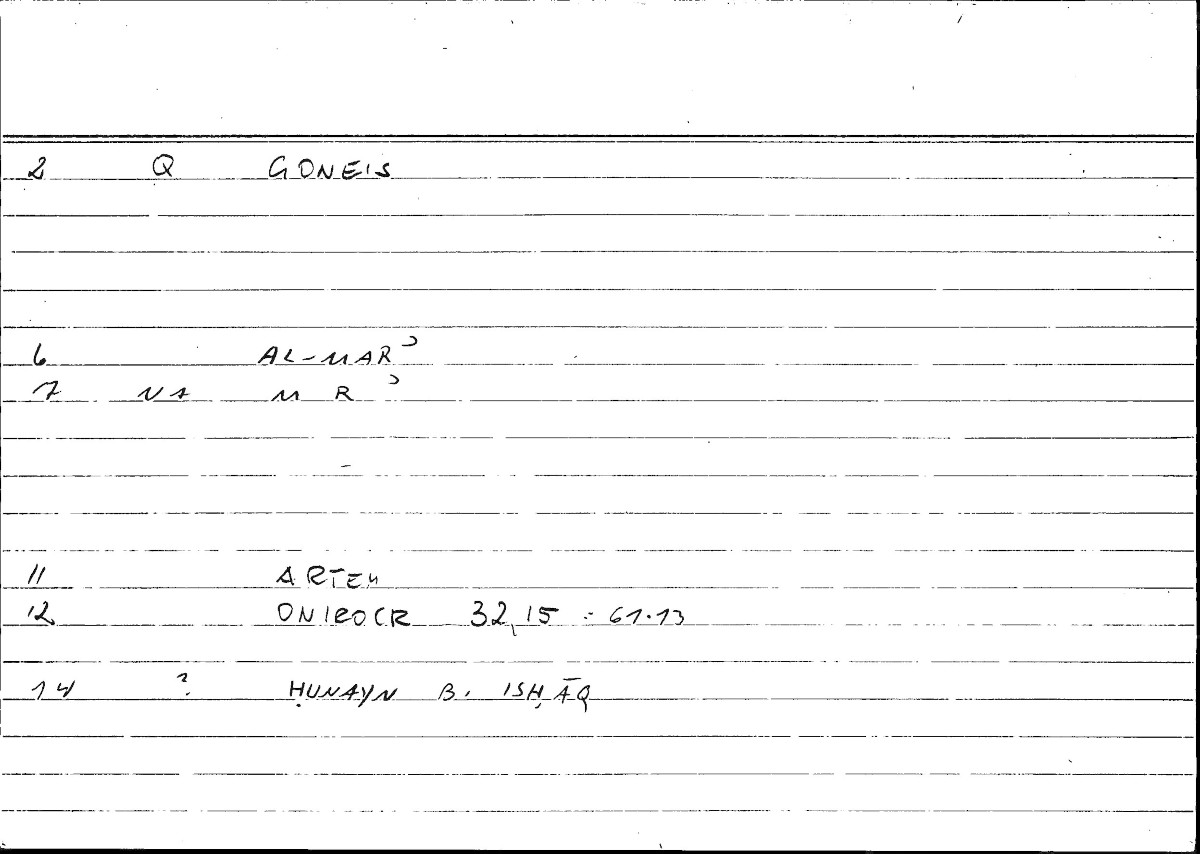 2 Q GONEIS
6 AL-MARʾ
7 N1 M R ʾ
11 ARTEM
12 ONIROCR 32,15 = 61.13
14 ? ḤUNAYN B. ISḤĀQ